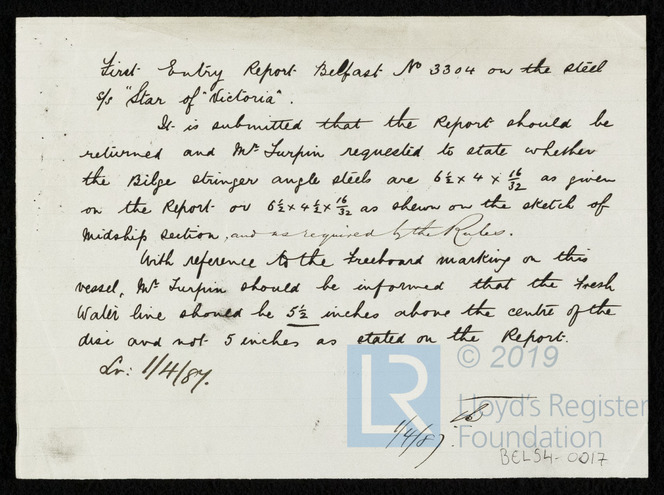 First Entry Report Belfast No 3304 on the steel
s/s "Star of Victoria".
It is submitted that the Report should be
returned and Mr Turpin requested to state whether
the Bilge stringer angle steels are 6½ x 4 x 16/32 as given
on the Report or 6½ x 4½ x 16/32 as shewn on the sketch of
Midship section, and as required by the Rules.
With reference to the Freeboard marking on this
vessel, Mr Turpin should be informed that the Fresh
Water line should be 5½ inches above the centre of the
disc and not 5 inches as stated on the Report.
1/4/87.
1/4/87
LR
© 2019
Lloyd's Register
Foundation
BELS4-0017